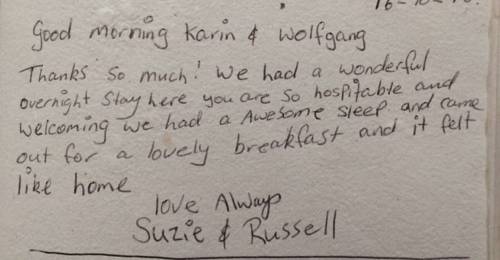 Good morning Karin & Wolfgang
Thanks so much! We had a wonderful
overnight Stay here you are so hospitable and
welcoming we had a Awesome sleep and came
out for a lovely breakfast and it felt
like home
love Always
Suzie & Russell